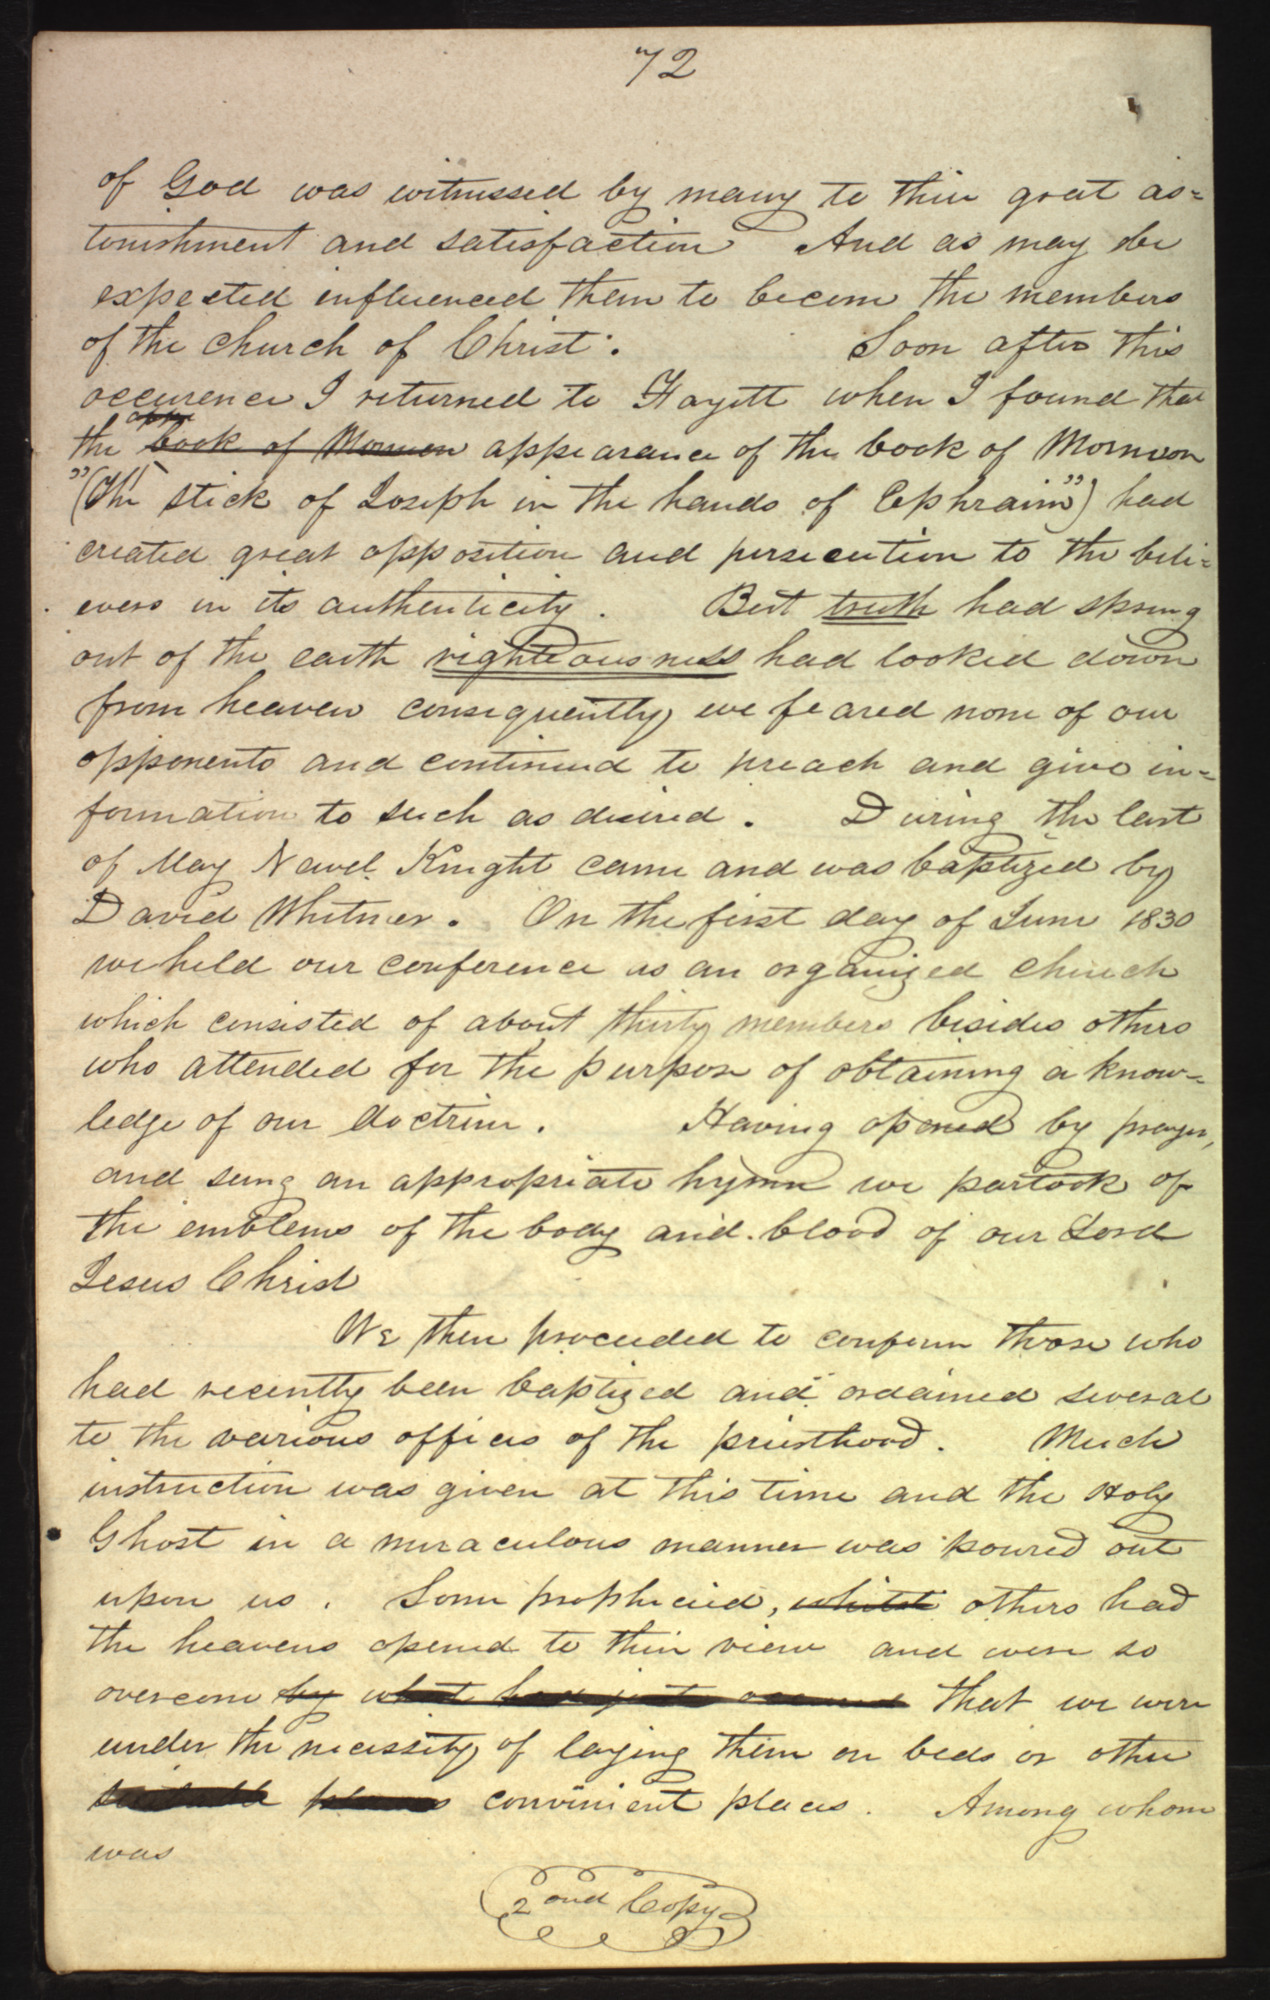 72
of God was witnessed by many to thier great as=
tonishment and satisfaction And as may be
expected influenced them to become the members
of the church of Christ. Soon after this
occurence I returned to Fayett when I found that
appe
the book of Mormon appearance of the book of Mormon
"(The stick of Joseph in the hands of Ephraim") had
created great opposition and persecution to the beli=
evers in its authenticity. But truth had sprung
out of the earth righteousness had looked down
from heaven consequently we feared none of our
opponents and continued to preach and give in=
formation to such as desired. During the last
of May Newel Knight came and was baptized by
David Whitmer. On the first day of June 1830
we held our conference as an organized church
which consisted of about thirty members besides others
who attended for the purpose of obtaining a know=
ledge of our doctrine. Having opened by prayer,
and sung an appropriate hymn we partook of
the emblems of the body and blood of our Lord
Jesus Christ
We then proceeded to confirm those who
had recently been baptized and ordained several
to the various offices of the priesthood. Much
instruction was given at this time and the Holy
Ghost in a miraculous manner was poured out
upon us. Some prophecied, whilst others had
the heavens opened to their view and were so
overcome by what had just occured that we were
under the necessity of laying them on beds or other
suitable places convinient places. Among whom
was
2ond Copy